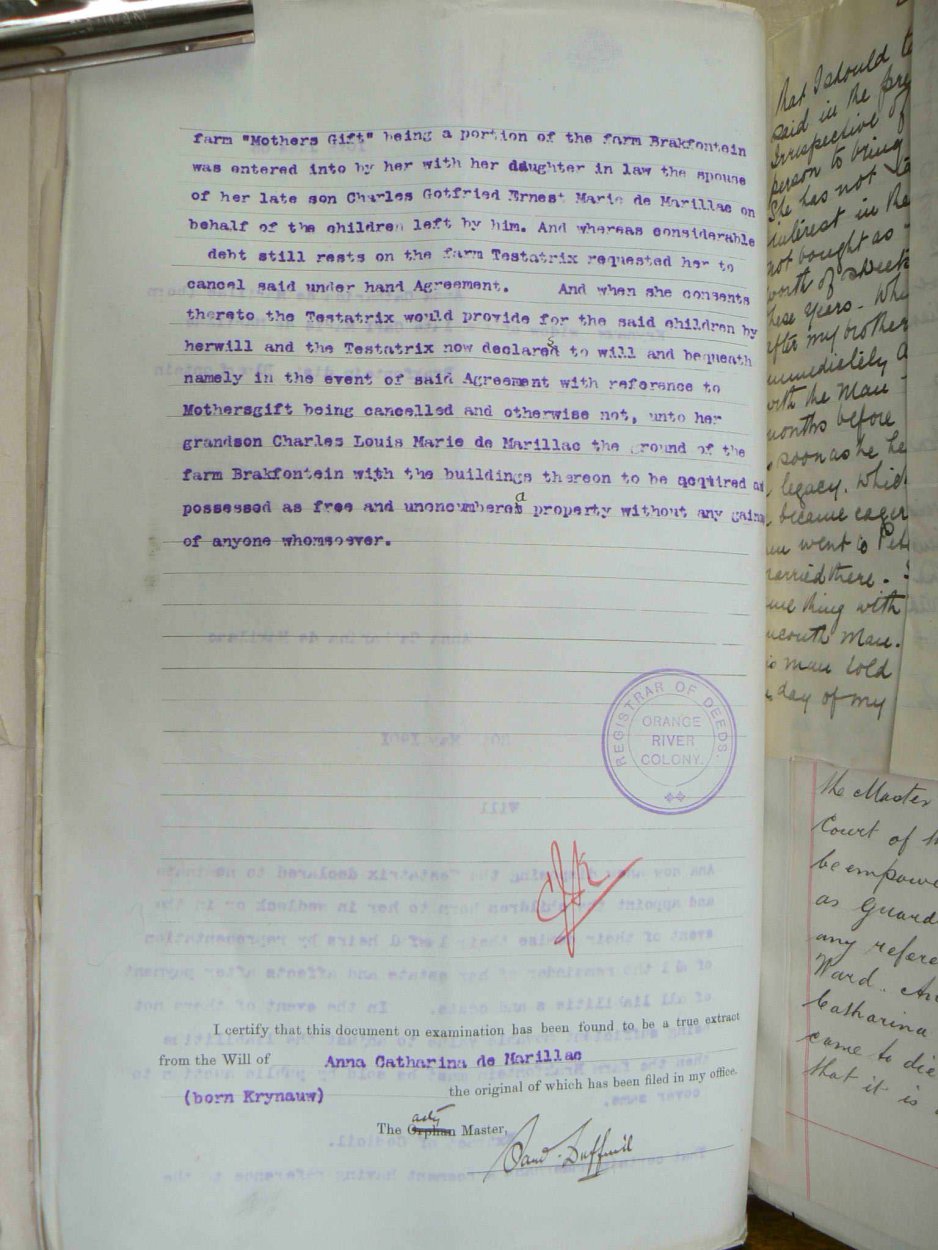 farm "Mothers Gift" being a portion of the farm Brakfontein
was entered into by her with her daughter in law the spouse
of her late son Charles Gotfried Ernest Marie de Marillac on
behalf of the children left by him. And whereas considerable
debt still rests on the farm Testatrix requested her to
cancel said under hand Agreement. And when she consents
thereto the Testatrix would provide for the said children by
herwill and the Testatrix now declares to will and bequeath
namely in the event of said Agreement with reference to
Mothersgift being cancelled and otherwise not, unto her
grandson Charles Louis Marie de Marillac the ground of the
farm Brakfontein with the buildings thereon to be acquired
possessed as free and unoncumbered property without any gain
of anyone whomsoever.
REGISTRAR OF DEEDS.
ORANGE
RIVER
COLONY.
I certify that this document on examination has been found to be a true extract
from the Will of Anna Catharina de Marillac
(born Krynauw) the original of which has been filed in my office.
actg
The Orphan Master,
that I should
said in the
Irrespective of
person to bring
She has not
interest in the
not bought as
worth of
these years.
after my brother
immediately
with the Man
months before
soon as he
legacy.
became eager
went to
married there.
thing with
uncouth Man.
man told
day of my
the Master
Court of
be
as
any
Ward.
Catharina
came to die
that it is